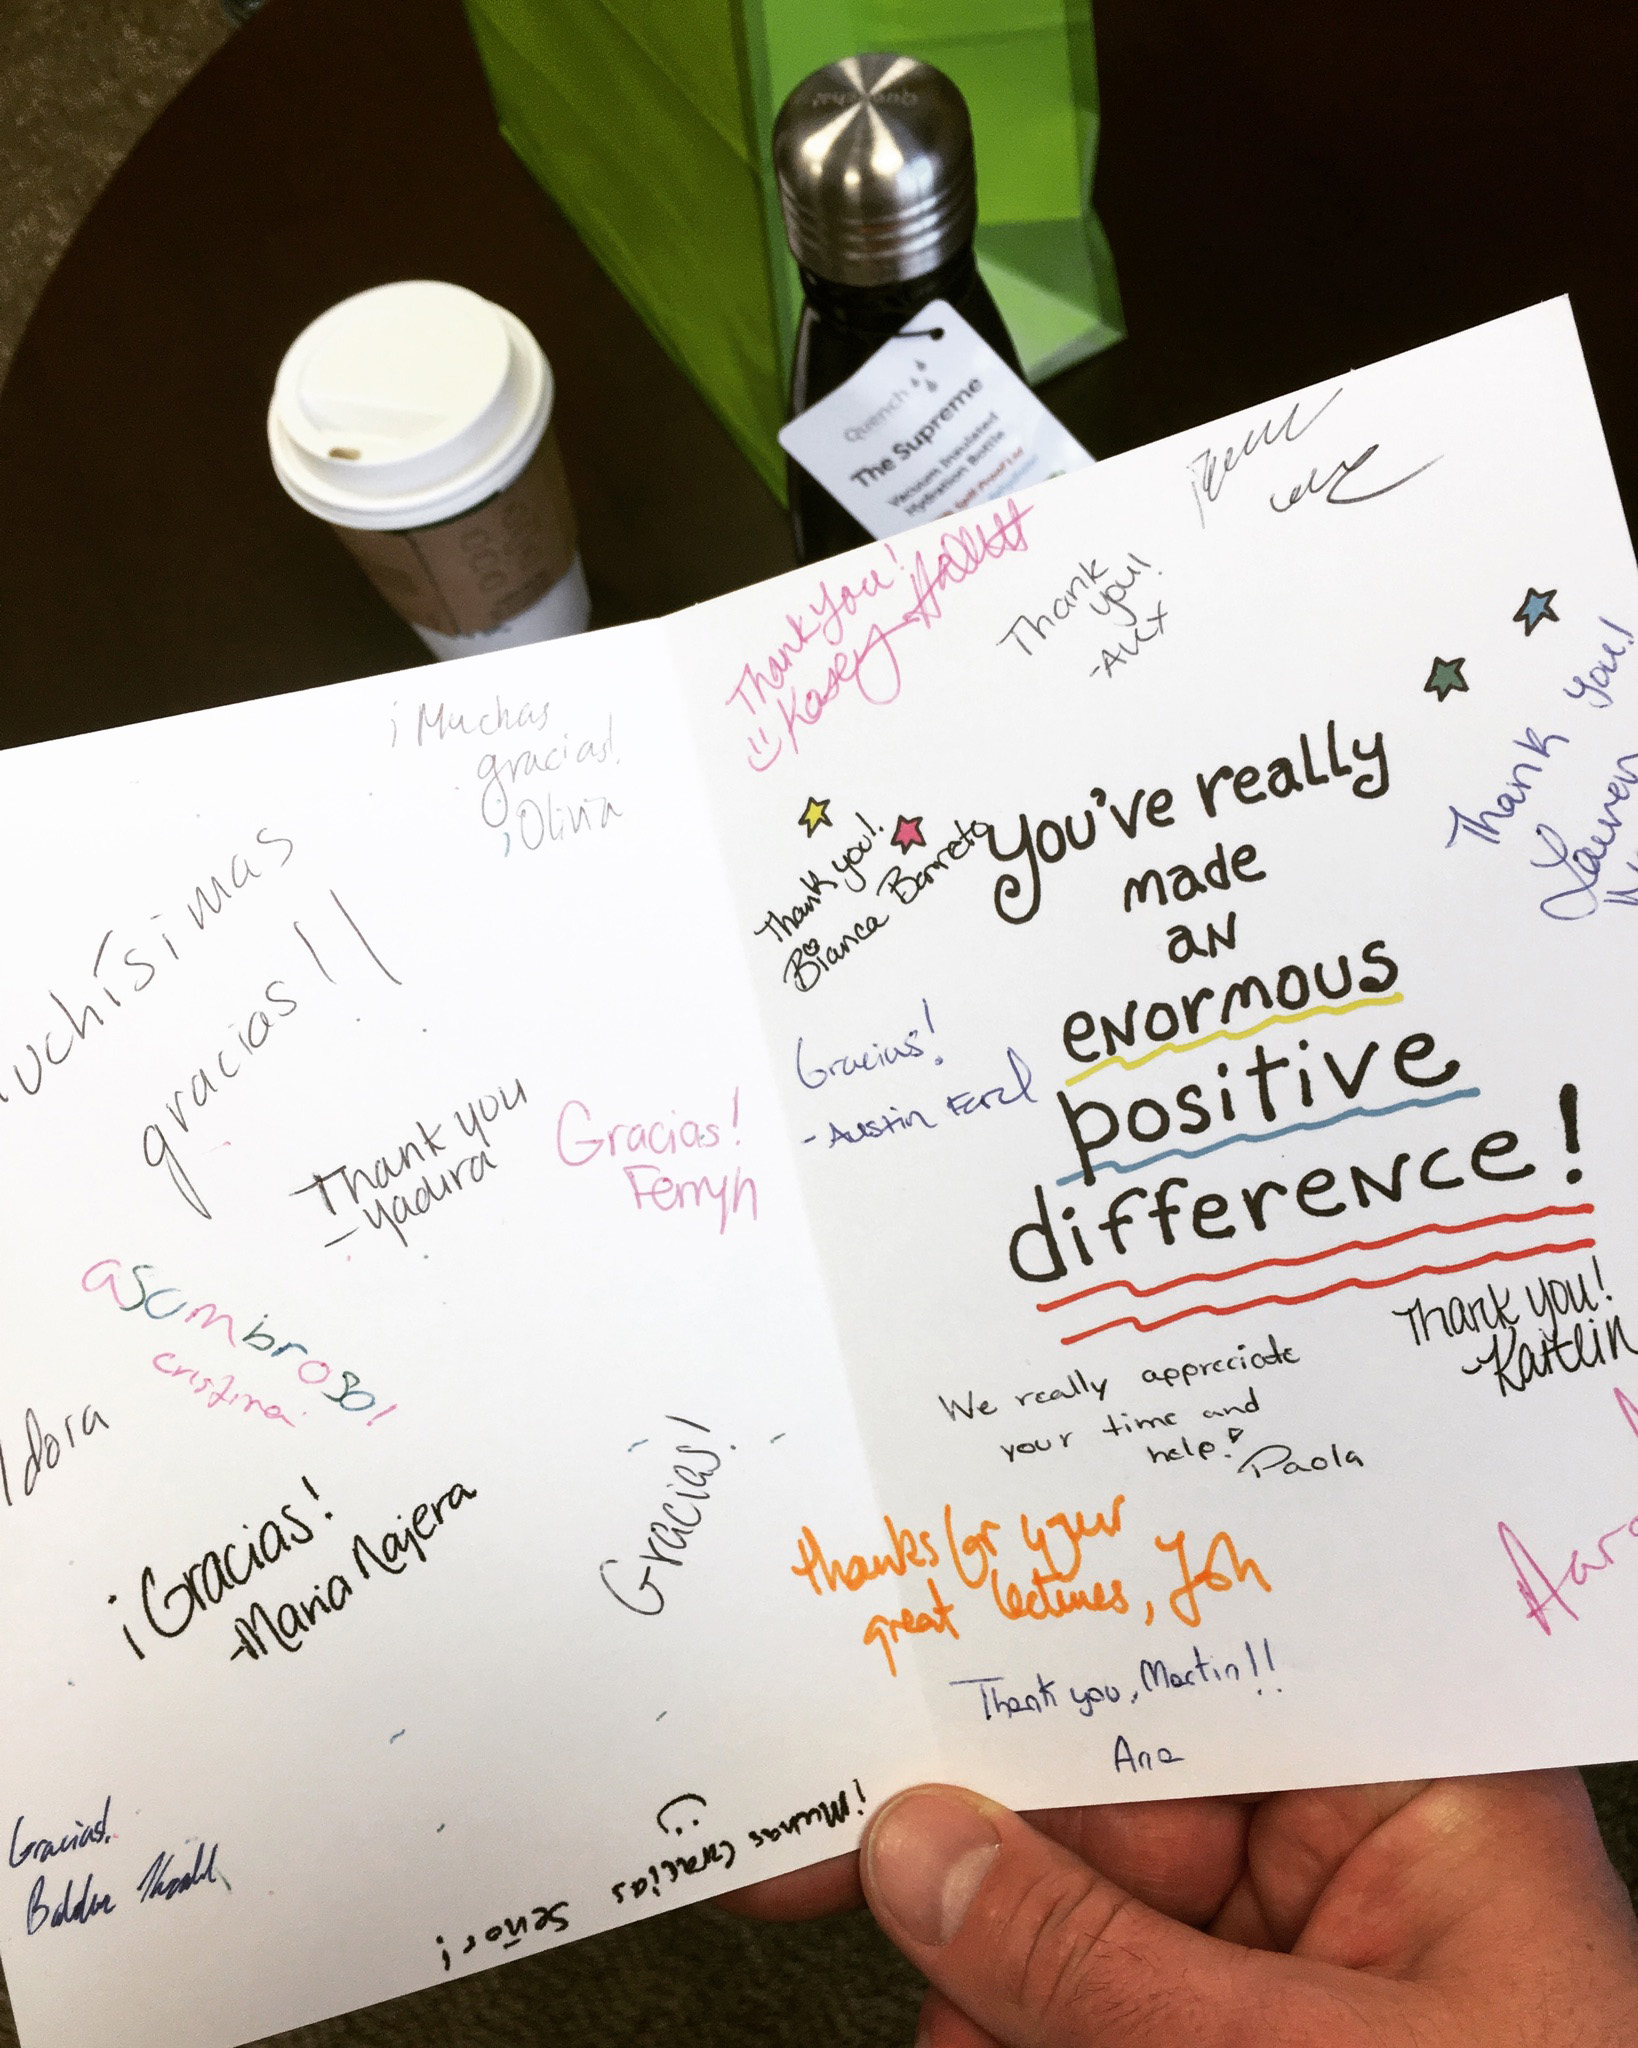 Quench
The Supreme
Vacuum Insulated
Hydration Bottle
¡Muchas
gracias!
Olivia
uchísimas
gracias!!
Thank you
-Yadira
Gracias!
Ferryn
asombroso!
cristina
Idora
¡Gracias!
-Maria Najera
Gracias!
Gracias!
¡Muchas Gracias Señor!
Thank you!
Kasey
Thank
you!
-Alex
Thank you!
Bianca Barreto
Gracias!
-Austin
you've really
made
an
enormous
positive
difference!
Thank you!
Lauren
Thank you!
-Kaitlin
We really appreciate
your time and
help!
Paola
thanks for your
great lectures, Josh
Thank you, Martin!!
Ana